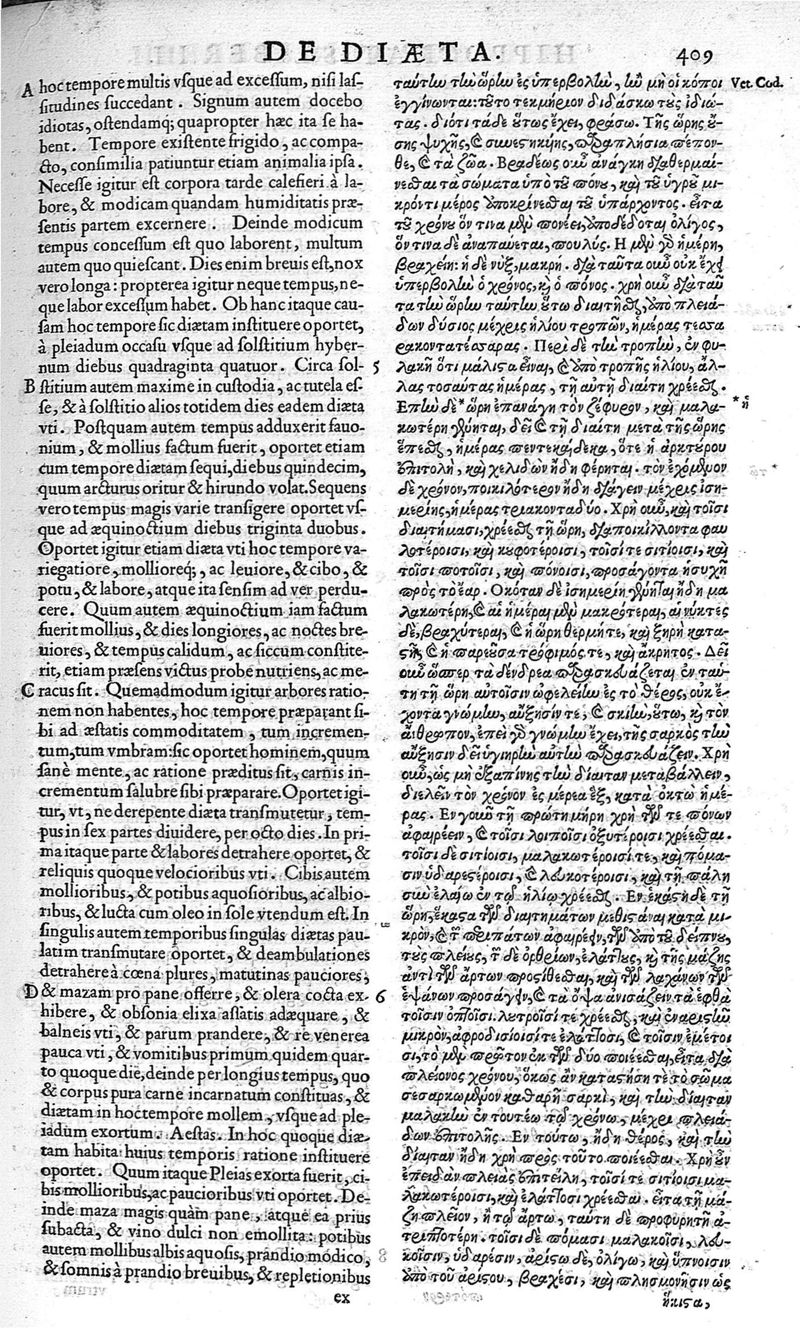 DE DIÆTA.
409
A hoc tempore multis vſque ad exceſſum, niſi laſ-
ſitudines ſuccedant. Signum autem docebo
idiotas, oſtendamq; quapropter hæc ita ſe ha-
bent. Tempore exiſtente frigido, ac compa-
cto, conſimilia patiuntur etiam animalia ipſa.
Neceſſe igitur eſt corpora tarde calefieri à la-
bore, & modicam quandam humiditatis præ-
ſentis partem excernere. Deinde modicum
tempus conceſſum eſt quo laborent, multum
autem quo quieſcant. Dies enim breuis eſt, nox
vero longa: propterea igitur neque tempus, ne-
que labor exceſſum habet. Ob hanc itaque cau-
ſam hoc tempore ſic diætam inſtituere oportet,
à pleiadum occaſu vſque ad ſolſtitium hyber-
num diebus quadraginta quatuor. Circa ſol-
B ſtitium autem maxime in cuſtodia, ac tutela eſ-
ſe, & à ſolſtitio alios totidem dies eadem diæta
vti. Poſtquam autem tempus adduxerit fauo-
nium, & mollius factum fuerit, oportet etiam
cum tempore diætam ſequi, diebus quindecim,
quum arcturus oritur & hirundo volat. Sequens
vero tempus magis varie tranſigere oportet vſ-
que ad æquinoctium diebus triginta duobus.
Oportet igitur etiam diæta vti hoc tempore va-
riegatiore, mollioreq;, ac leuiore, & cibo, &
potu, & labore, atque ita ſenſim ad ver perdu-
cere. Quum autem æquinoctium iam factum
fuerit mollius, & dies longiores, ac noctes bre-
uiores, & tempus calidum, ac ſiccum conſtite-
rit, etiam præſens victus probe nutriens, ac me-
C racus ſit. Quemadmodum igitur arbores ratio-
nem non habentes, hoc tempore præparant ſi-
bi ad æſtatis commoditatem, tum incremen-
tum, tum vmbram: ſic oportet hominem, quum
ſanè mente, ac ratione præditus ſit, carnis in-
crementum ſalubre ſibi præparare. Oportet igi-
tur, vt, ne derepente diæta tranſmutetur, tem-
pus in ſex partes diuidere, per octo dies. In pri-
ma itaque parte & labores detrahere oportet, &
reliquis quoque velocioribus vti. Cibis autem
mollioribus, & potibus aquoſioribus, ac albio-
ribus, & lucta cum oleo in ſole vtendum eſt. In
ſingulis autem temporibus ſingulas diætas pau-
latim tranſmutare oportet, & deambulationes
detrahere à cœna plures, matutinas pauciores,
D & mazam pro pane offerre, & olera cocta ex-
hibere, & obſonia elixa aſſatis adæquare, &
balneis vti, & parum prandere, & re venerea
pauca vti, & vomitibus primum quidem quar-
to quoque die, deinde per longius tempus, quo
& corpus pura carne incarnatum conſtituas, &
diætam in hoc tempore mollem, vſque ad ple-
iadum exortum. Aeſtas. In hoc quoque diæ-
tam habita huius temporis ratione inſtituere
oportet. Quum itaque Pleias exorta fuerit, ci-
bis mollioribus, ac paucioribus vti oportet. De-
inde maza magis quàm pane, atque ea prius
ſubacta, & vino dulci non emollita: potibus
autem mollibus albis aquoſis, prandio modico,
& ſomnis à prandio breuibus, & repletionibus
ex
5
6
ταύτην τὴν ὥρην ἐς ὑπερβολὴν, ἢν μὴ οἱ κόποι
ἐγγίνωνται: τοῦτο τεκμήριον διδάσκω τοὺς ἰδιώ-
τας. διότι τὰ δὲ οὕτως ἔχει, φράσω. Τῆς ὥρης ἐού-
σης ψυχρῆς, καὶ συνεστηκυίης, παραπλήσια πέπον-
θε, καὶ τὰ ζῶα. Βραδέως οὖν ἀνάγκη διαθερμαί-
νεσθαι τὰ σώματα ὑπὸ τοῦ πόνου, καὶ τοῦ ὑγροῦ μι-
κρόν τι μέρος ὑποκρίνεσθαι τοῦ ὑπάρχοντος. εἶτα
τοῦ χρόνου ὅν τινα μὲν πονέει, ὑποδέδοται ὀλίγος,
ὅν τινα δὲ ἀναπαύεται, πουλύς. Η μὲν γὰρ ἡμέρη,
βραχείη: ἡ δὲ νὺξ, μακρή. διὰ ταῦτα οὖν οὐκ ἔχει
ὑπερβολὴν ὁ χρόνος, καὶ ὁ πόνος. χρὴ οὖν διὰ ταῦ-
τα τὴν ὥρην ταύτην οὕτω διαιτῆσθαι, ἀπὸ πλειά-
δων δύσιος μέχρις ἡλίου τροπῶν, ἡμέρας τεσσα
ρακοντατέσσαρας. Περὶ δὲ τὴν τροπὴν, ἐν φυ-
λακῇ ὅτι μάλιστα εἶναι, καὶ ἀπὸ τροπῆς ἡλίου, ἄλ-
λας τοσαύτας ἡμέρας, τῇ αὐτῇ διαίτῃ χρέεσθαι.
Επὴν δὲ * ὥρη ἐπανάγῃ τὸν ζέφυρον, καὶ μαλα-
κωτέρη γένηται, δεῖ καὶ τῇ διαίτῃ μετὰ τῆς ὥρης
ἕπεσθαι, ἡμέρας πεντεκαίδεκα, ὅτε ἡ ἀρκτούρου
ἐπιτολὴ, καὶ χελιδὼν ἤδη φέρηται. τὸν ἐχόμενον
δὲ χρόνον, ποικιλότερον ἤδη διάγειν μέχρις ἰση-
μερίης, ἡμέρας τριακονταδύο. Χρὴ οὖν, καὶ τοῖσι
διαιτήμασι, χρέεσθαι τῇ ὥρῃ, διαποικίλλοντα φαυ
λοτέροισι, καὶ κουφοτέροισι, τοῖσί τε σιτίοισι, καὶ
τοῖσι ποτοῖσι, καὶ πόνοισι, προσάγοντα ἡσυχῇ
πρὸς τὸ ἔαρ. Οκόταν δὲ ἰσημερίη γένηται ἤδη μα
λακωτέρη, καὶ αἱ ἡμέραι μὲν μακρότεραι, αἱ νύκτες
δὲ, βραχύτεραι, καὶ ἡ ὥρη θερμή τε, καὶ ξηρὴ κατα-
στῇ, καὶ ἡ παρεοῦσα τρόφιμός τε, καὶ ἄκρητος. Δεῖ
οὖν ὥσπερ τὰ δένδρεα παρασκευάζεται ἐν ταύ-
τῃ τῇ ὥρῃ αὐτοῖσιν ὠφελείην ἐς τὸ θέρος, οὐκ ἔ-
χοντα γνώμην, αὔξησίν τε, καὶ σκιὴν, οὕτω, καὶ τὸν
ἄνθρωπον, ἐπεὶ γὰρ γνώμην ἔχει, τῆς σαρκὸς τὴν
αὔξησιν δεῖ ὑγιηρὴν αὐτὴν παρασκευάζειν. Χρὴ
οὖν, ὡς μὴ ἐξαπίνης τὴν δίαιταν μεταβάλλειν,
διελεῖν τὸν χρόνον ἐς μέρεα ἓξ, κατὰ ὀκτὼ ἡμέ-
ρας. Εν γοῦν τῇ πρώτῃ μοίρῃ χρή τε πόνων
ἀφαιρέειν, καὶ τοῖσι λοιποῖσι ὀξυτέροισι χρέεσθαι.
τοῖσι δὲ σιτίοισι, μαλακωτέροισί τε, καὶ πόμα-
σιν ὑδαρεστέροισι, καὶ λευκοτέροισι, καὶ τῇ πάλῃ
σὺν ἐλαίῳ ἐν τῷ ἡλίῳ χρέεσθαι. Εν ἑκάστῃ δὲ τῇ
ὥρῃ, ἕκαστα τῶν διαιτημάτων μεθιστάναι κατὰ μι-
κρὸν, καὶ τῶν περιπάτων ἀφαιρέειν, τῶν ἀπὸ τοῦ δείπνου,
τοὺς πλείους, τῶν δὲ ὀρθρίων, ἐλάττους, καὶ τῆς μάζης
ἀντὶ τῶν ἄρτων προστίθεσθαι, καὶ τῶν λαχάνων τῶν
ἑψανῶν προσάγειν, καὶ τὰ ὄψα ἀνισάζειν τὰ ἑφθὰ
τοῖσιν ὀπτοῖσι. λουτροῖσί τε χρέεσθαι, καὶ ἐναριστᾶν
μικρὸν, ἀφροδισίοισί τε ἐλάττοσι, καὶ τοῖσιν ἐμέτοι
σι, τὸ μὲν πρῶτον ἐκ τῶν δύο ποιέεσθαι, εἶτα διὰ
πλείονος χρόνου, ὅκως ἂν καταστήσῃ τέ τὸ σῶμα
σεσαρκωμένον καθαρῇ σαρκὶ, καὶ τὴν δίαιταν
μαλακὴν ἐν τουτέῳ τῷ χρόνῳ, μέχρι πλειά-
δων ἐπιτολῆς. Εν τούτῳ, ἤδη θέρος, καὶ τὴν
δίαιταν ἤδη χρὴ πρὸς τοῦτο ποιέεσθαι. Χρὴ οὖν
ἐπειδὰν πλειὰς ἐπιτείλῃ, τοῖσί τε σιτίοισι μα-
λακωτέροισι, καὶ ἐλάττοσι χρέεσθαι. εἶτα τῇ μά-
ζῃ πλεῖον, ἢ τῷ ἄρτῳ, ταύτῃ δὲ προφυρητῇ ἀ-
τριπτοτέρῃ. τοῖσι δὲ πόμασι μαλακοῖσι, λευ-
κοῖσιν, ὑδαρέσιν, ἀρίστῳ δὲ, ὀλίγῳ, καὶ ὕπνοισιν
ἀπὸ τοῦ ἀρίστου, βραχέσι, καὶ πλησμονῇσιν ὡς
ἥκιστα,
Vet. Cod.
* ἡ